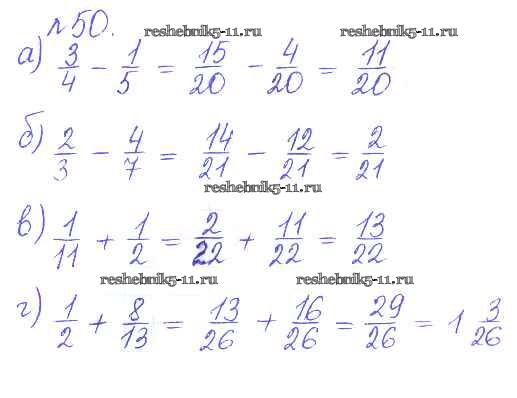 №50. reshebnik5-11.ru reshebnik5-11.ru
а) 3/4 - 1/5 = 15/20 - 4/20 = 11/20
б) 2/3 - 4/7 = 14/21 - 12/21 = 2/21
reshebnik5-11.ru
в) 1/11 + 1/2 = 2/22 + 11/22 = 13/22
reshebnik5-11.ru reshebnik5-11.ru
г) 1/2 + 8/13 = 13/26 + 16/26 = 29/26 = 1 3/26